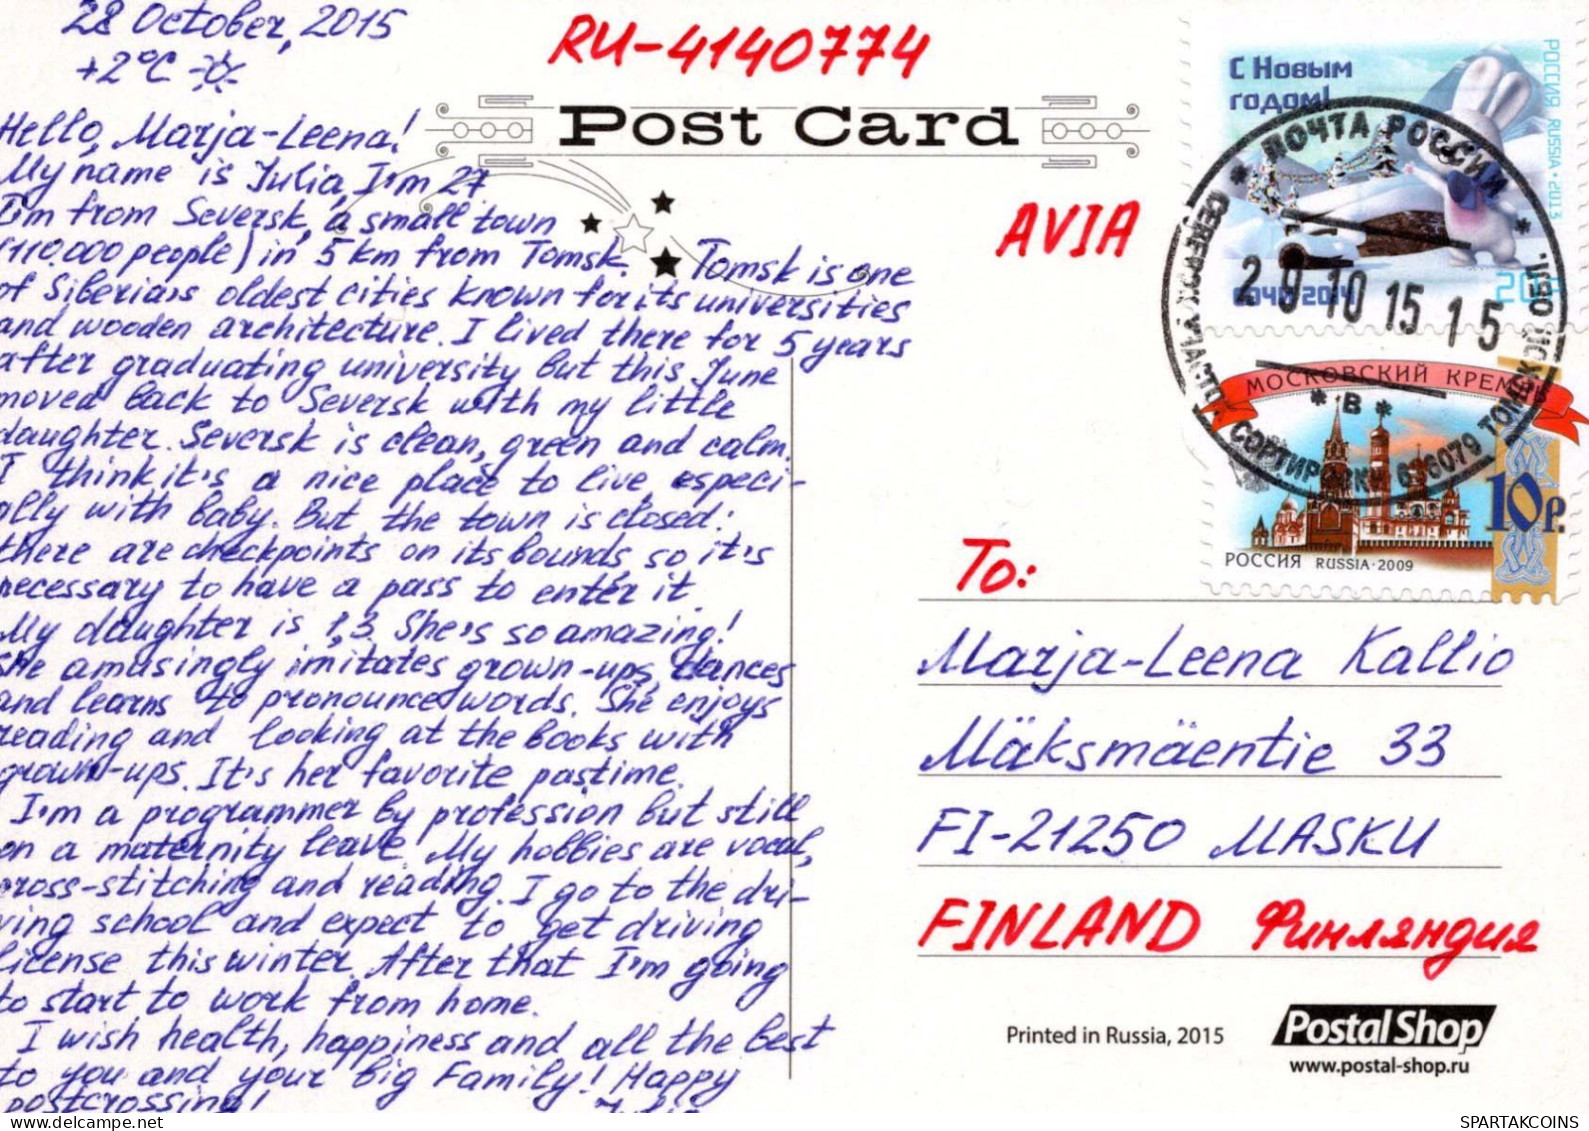 28 October, 2015
+2°C
Hello, Marja-Leena!
My name is Julia, I'm 27
I'm from Seversk, a small town
(110.000 people) in 5 km from Tomsk. Tomsk is one
of Siberia's oldest cities known for its universities
and wooden architecture. I lived there for 5 years
after graduating university but this June
moved back to Seversk with my little
daughter. Seversk is clean, green and calm.
I think it's a nice place to live, especi-
ally with baby. But the town is closed:
there are checkpoints on its bounds so it's
necessary to have a pass to enter it.
My daughter is 1,3. She's so amazing!
She amusingly imitates grown-ups, dances
and learns to pronounce words. She enjoys
reading and looking at the books with
grown-ups. It's her favorite pastime.
I'm a programmer by profession but still
on a maternity leave. My hobbies are vocal,
cross-stitching and reading. I go to the dri-
ving school and expect to get driving
license this winter. After that I'm going
to start to work from home.
I wish health, happiness and all the best
to you and your big family! Happy
postcrossing!
Julia
RU-4140774
Post Card
AVIA
С Новым
годом!
РОССИЯ RUSSIA • 2013
СОЧИ 2014
ПОЧТА РОССИИ
29 10 15 15
МОСКОВСКИЙ КРЕМЛЬ
* В *
10 р.
РОССИЯ RUSSIA • 2009
To:
Marja-Leena Kallio
Mäksmäentie 33
FI-21250 MASKU
FINLAND Финляндия
Printed in Russia, 2015
Postal Shop
www.postal-shop.ru
SPARTAKCOINS